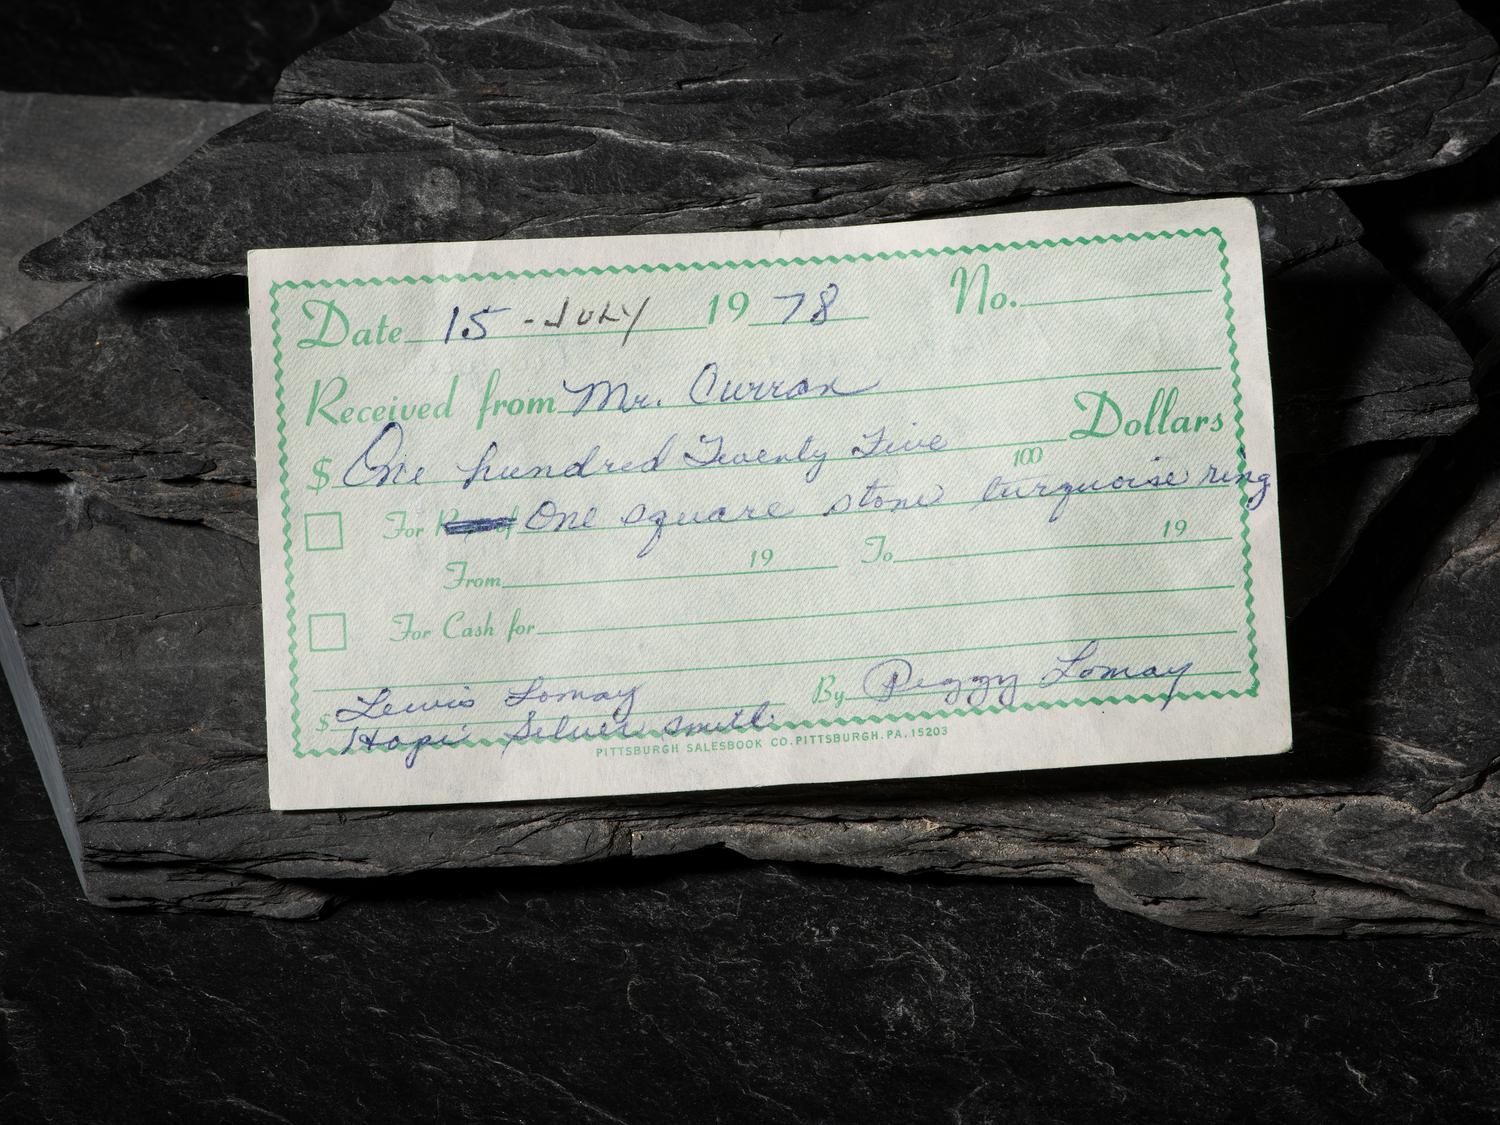 Date 15 - JULY 1978 No.
Received from Mr. Curran
$ One hundred Twenty Five 100 Dollars
For One square stone turquoise ring
From 19 To 19
For Cash for
$ Lewis Lomay By Peggy Lomay
Hopi Silver smith
PITTSBURGH SALESBOOK CO. PITTSBURGH. PA. 15203